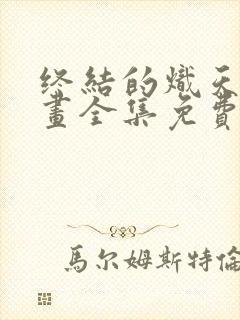 终結的熾天
畫全集免費
馬尔姆斯特倫